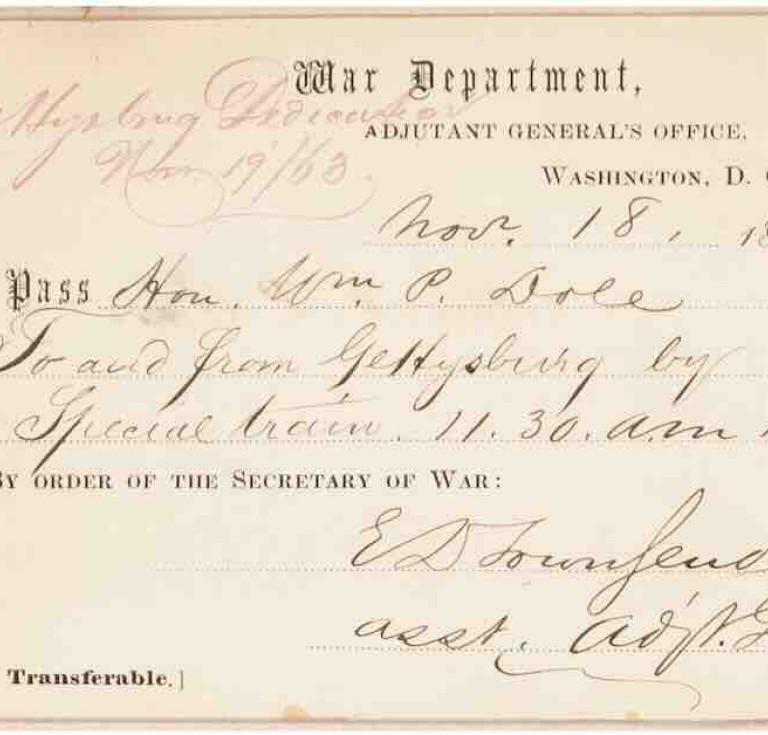 War Department,
ttysburg Dedication
ADJUTANT GENERAL'S OFFICE,
Nov. 19/63.
WASHINGTON, D.
Nov. 18, 18
Pass Hon. Wm. P. Dole
To and from Gettysburg by
Special train. 11.30. a.m
BY ORDER OF THE SECRETARY OF WAR:
E D Townsend
asst. Adjt. G
Transferable.]